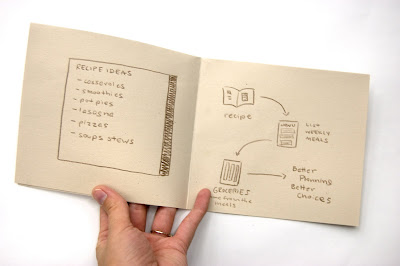 RECIPE IDEAS
- casseroles
- smoothies
- pot pies
- lasagna
- pizzas
- soups stews
recipe
MENU
LIST
WEEKLY
MEALS
GROCERIES
meals
Better
Planning
Better
Choices